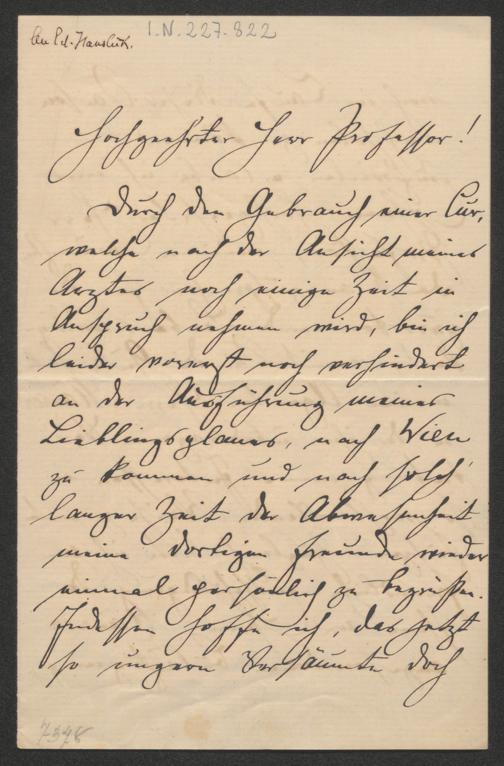 An Ed. Hanslick.
I.N. 227.822
Hochgeehrter Herr Professor!
Durch den Gebrauch einer Cur,
welche nach der Ansicht meines
Arztes noch einige Zeit in
Anspruch nehmen wird, bin ich
leider vorerst noch verhindert
an der Ausführung meines
Lieblingsplanes, nach Wien
zu kommen und nach solch'
langer Zeit der Abwesenheit
meine dortigen Freunde wieder
einmal persönlich zu begrüßen.
Indessen hoffe ich, das jetzt
so ungern Versäumte doch
7598